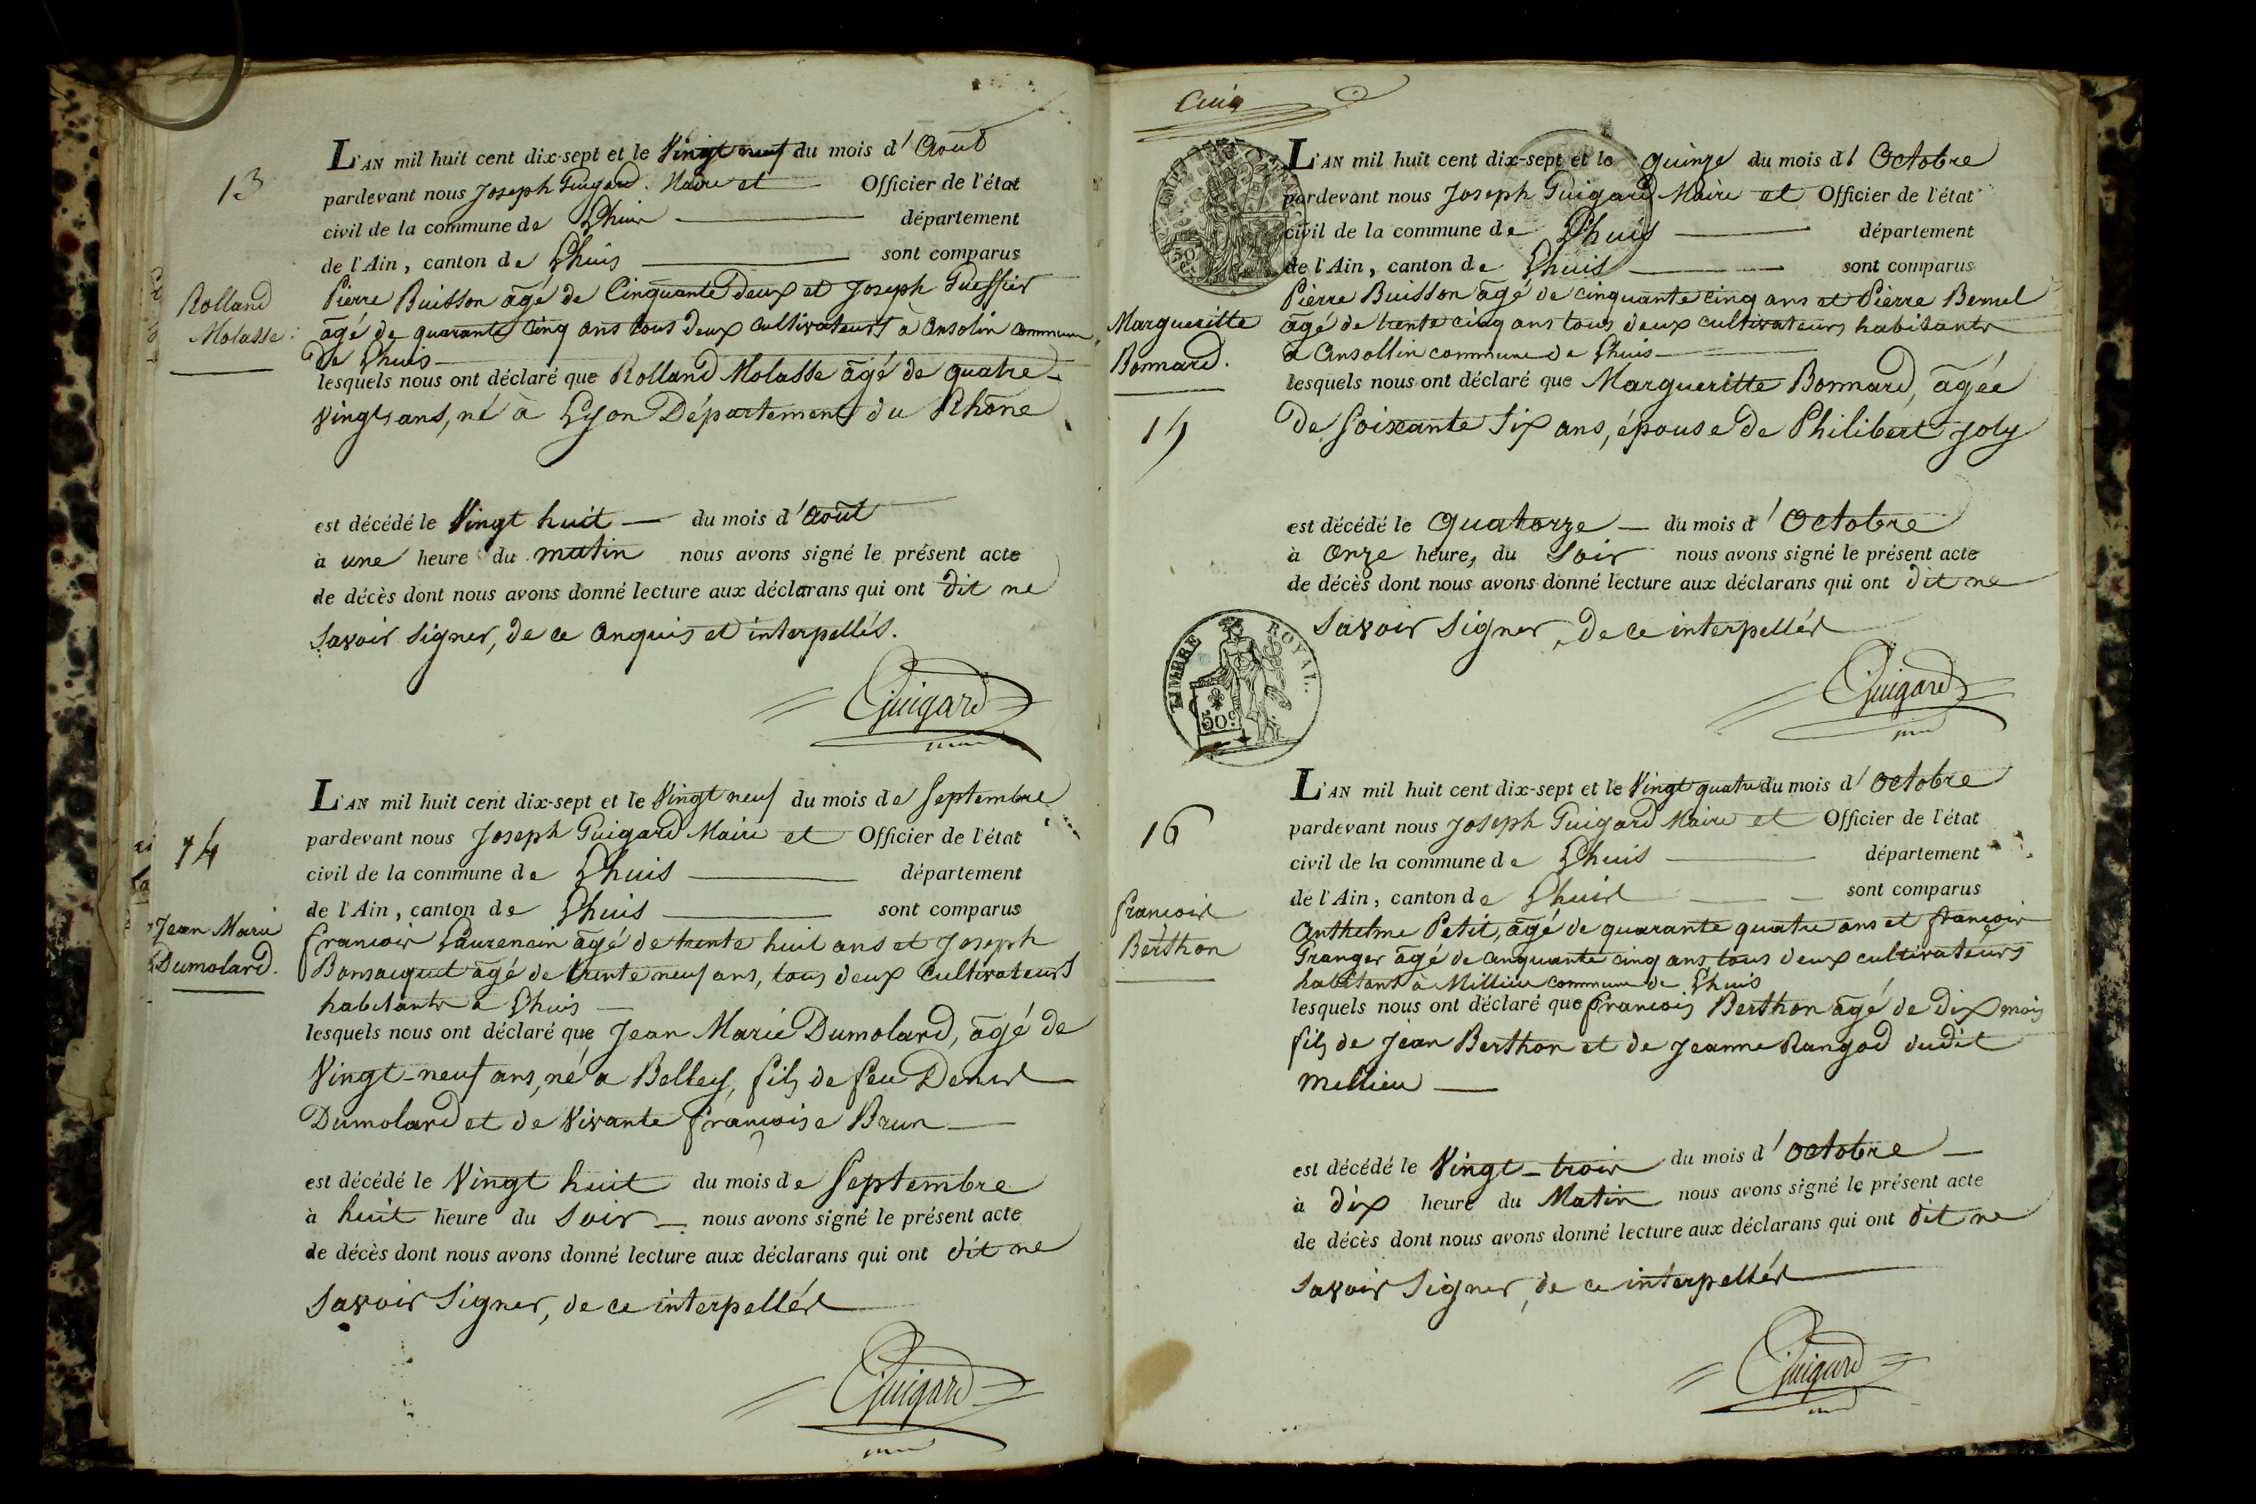 13
Rolland
Molasse.
L'AN mil huit cent dix-sept et le Vingt neuf du mois d'Août
pardevant nous Joseph Guigard Maire et Officier de l'état
civil de la commune de Lhuis département
de l'Ain, canton de Lhuis sont comparus
Pierre Buisson âgé de Cinquante deux et Joseph
âgé de quarante cinq ans tous deux cultivateurs à Ansolin commune
de Lhuis
lesquels nous ont déclaré que Rolland Molasse âgé de quatre
Vingts ans, né à Lyon Département du Rhône
est décédé le Vingt huit du mois d'août
à une heure du matin nous avons signé le présent acte
de décès dont nous avons donné lecture aux déclarans qui ont dit ne
Savoir Signer, de ce anquis et interpellés.
Guigard
14
Jean Marie
Dumolard.
L'AN mil huit cent dix-sept et le Vingt neuf du mois de Septembre
pardevant nous Joseph Guigard Maire et Officier de l'état
civil de la commune de Lhuis département
de l'Ain, canton de Lhuis sont comparus
francois Laurencin âgé de trente huit ans et Joseph
Bonsacquet âgé de trente neuf ans, tous deux Cultivateurs
habitants a Lhuis
lesquels nous ont déclaré que Jean Marie Dumolard, âgé de
Vingt-neuf ans, né a Belley, fils de feu Denis
Dumolard et de Vivante françoise Brun
est décédé le Vingt huit du mois de Septembre
à huit heure du Soir nous avons signé le présent acte
de décès dont nous avons donné lecture aux déclarans qui ont dit ne
Savoir Signer, de ce interpellés
Guigard
Cinq
Margueritte
Bonnard.
15
L'AN mil huit cent dix-sept et le quinze du mois d'Octobre
pardevant nous Joseph Guigard Maire et Officier de l'état
civil de la commune de Lhuis département
de l'Ain, canton de Lhuis sont comparus
Pierre Buisson âgé de cinquante cinq ans et Pierre
âgé de trente cinq ans tous deux cultivateurs habitants
a Ansollin commune de Lhuis
lesquels nous ont déclaré que Margueritte Bonnard, âgée
de Soixante Six ans, épouse de Philibert Joly
est décédé le quatorze du mois d'Octobre
à Onze heures du Soir nous avons signé le présent acte
de décès dont nous avons donné lecture aux déclarans qui ont dit ne
Savoir Signer, de ce interpellés
TIMBRE ROYAL.
50c
Guigard
16
françois
Berthon
L'AN mil huit cent dix-sept et le Vingt quatre du mois d'Octobre
pardevant nous Joseph Guigard Maire et Officier de l'état
civil de la commune de Lhuis département
de l'Ain, canton de Lhuis sont comparus
Anthelme Petit, âgé de quarante quatre ans et francois
Granger âgé de cinquante cinq ans tous deux cultivateurs
habitant à Millieu commune de Lhuis
lesquels nous ont déclaré que francois Berthon âgé de dix mois
fils de Jean Berthon et de Jeanne Rangod dudit
Millieu
est décédé le Vingt-trois du mois d'Octobre
à dix heure du Matin nous avons signé le présent acte
de décès dont nous avons donné lecture aux déclarans qui ont dit ne
Savoir Signer, de ce interpellés
Guigard